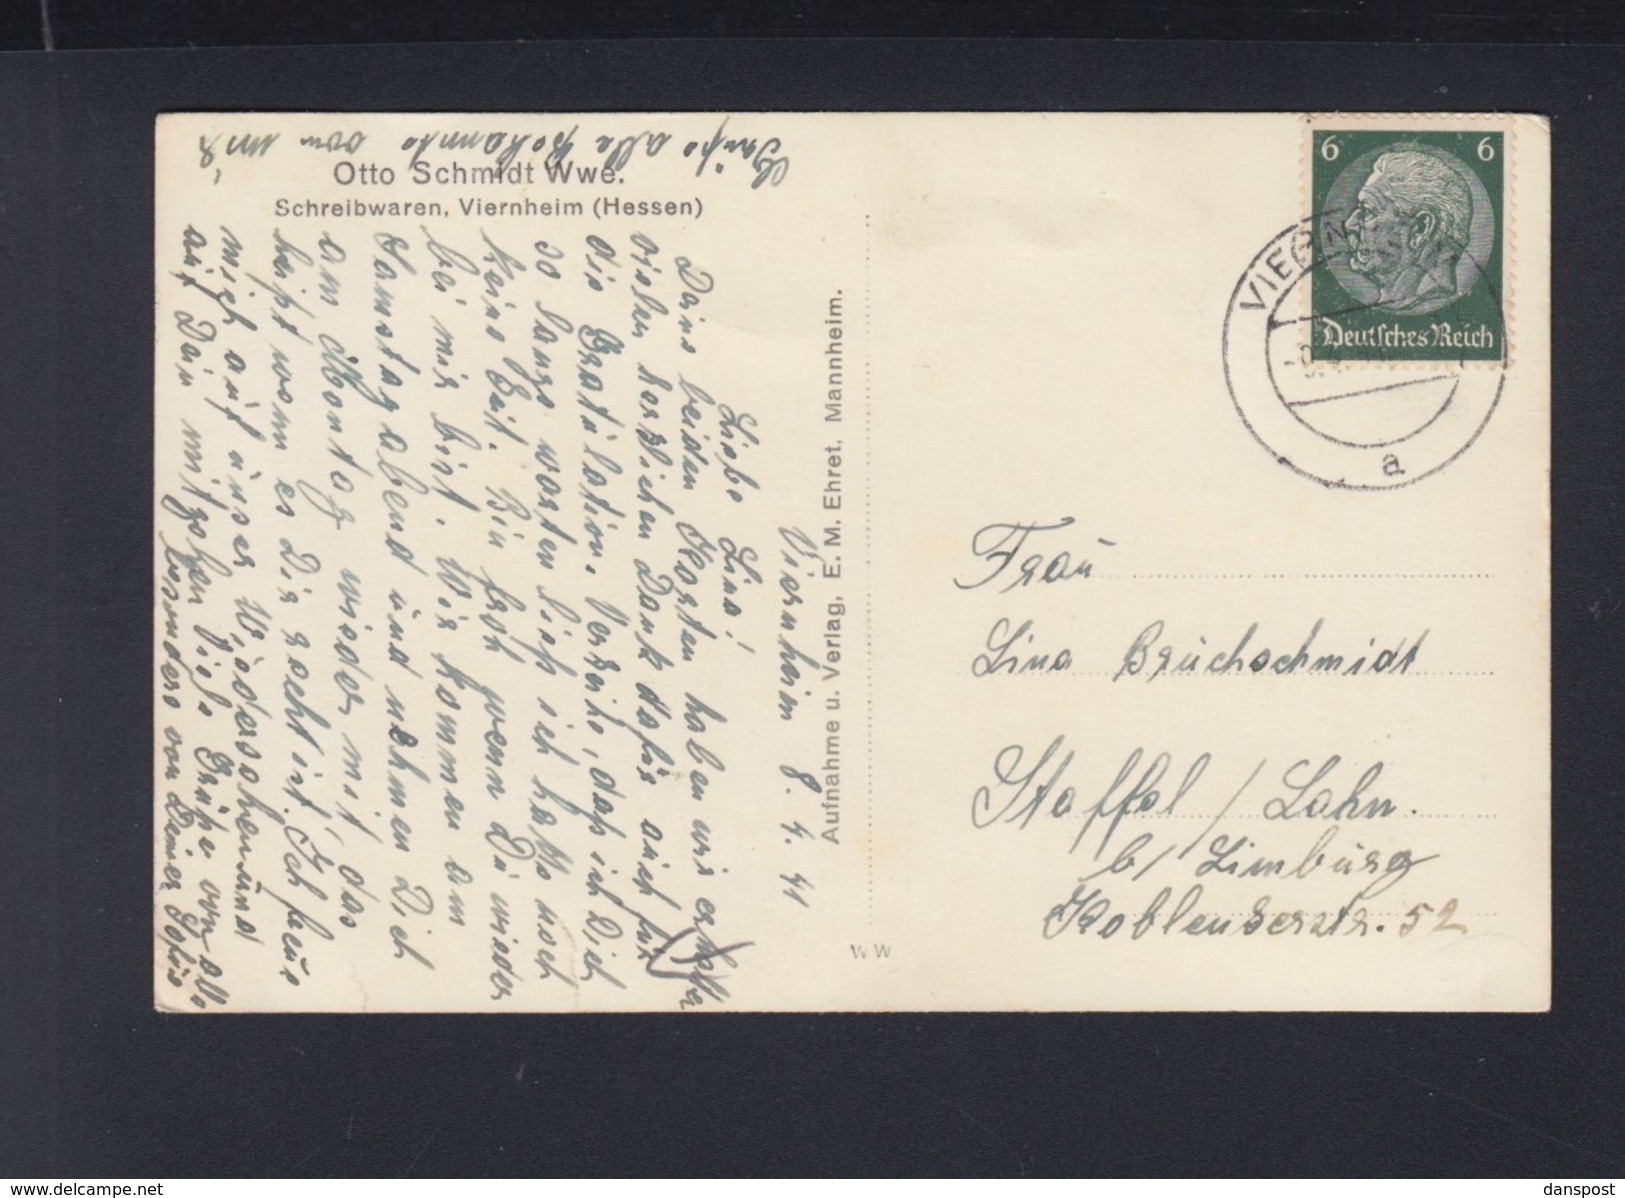 Otto Schmidt Wwe.
Schreibwaren, Viernheim (Hessen)
Viernheim 8. 4. 41
Liebe Lina!
Deine beiden Karten haben wir erhalten
vielen herzlichen Dank dafür auch für
die Gratulation. Verzeihe, daß ich Dich
so lange warten ließ ich hatte noch
keine Zeit. Bin froh wenn Du wieder
bei mir bist. Wir kommen am
Samstag abend und nehmen Dich
am Montag wieder mit, das
heißt wenn es Dir recht ist. Ich freue
mich auf unser Wiedersehen und
auf Dein mitgehen Viele Grüße von alle
besonders von Deiner Sofie
Grüße alle Bekannte von uns
Aufnahme u. Verlag, E. M. Ehret, Mannheim.
WW
6 6
Deutsches Reich
VIERN
a
Frau
Lina Bruchschmidt
Staffel / Lahn.
b/ Limburg
Koblenzerstr. 52
www.delcampe.net
danspost